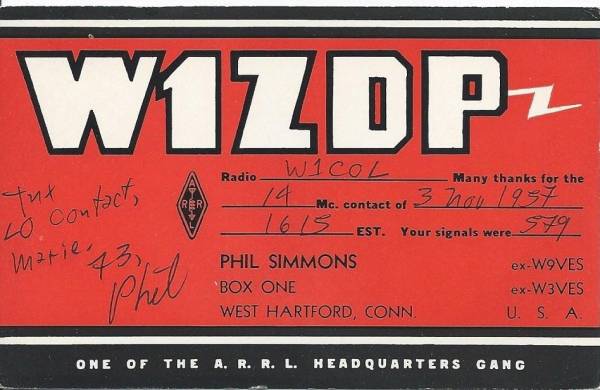 W1ZDP
Radio W1COL Many thanks for the
14 Mc. contact of 3 Nov 1957
1615 EST. Your signals were 579
tnx
LO contact,
Marie.
73,
Phil
A
R R
L
PHIL SIMMONS ex-W9VES
BOX ONE ex-W3VES
WEST HARTFORD, CONN. U. S. A.
ONE OF THE A. R. R. L. HEADQUARTERS GANG